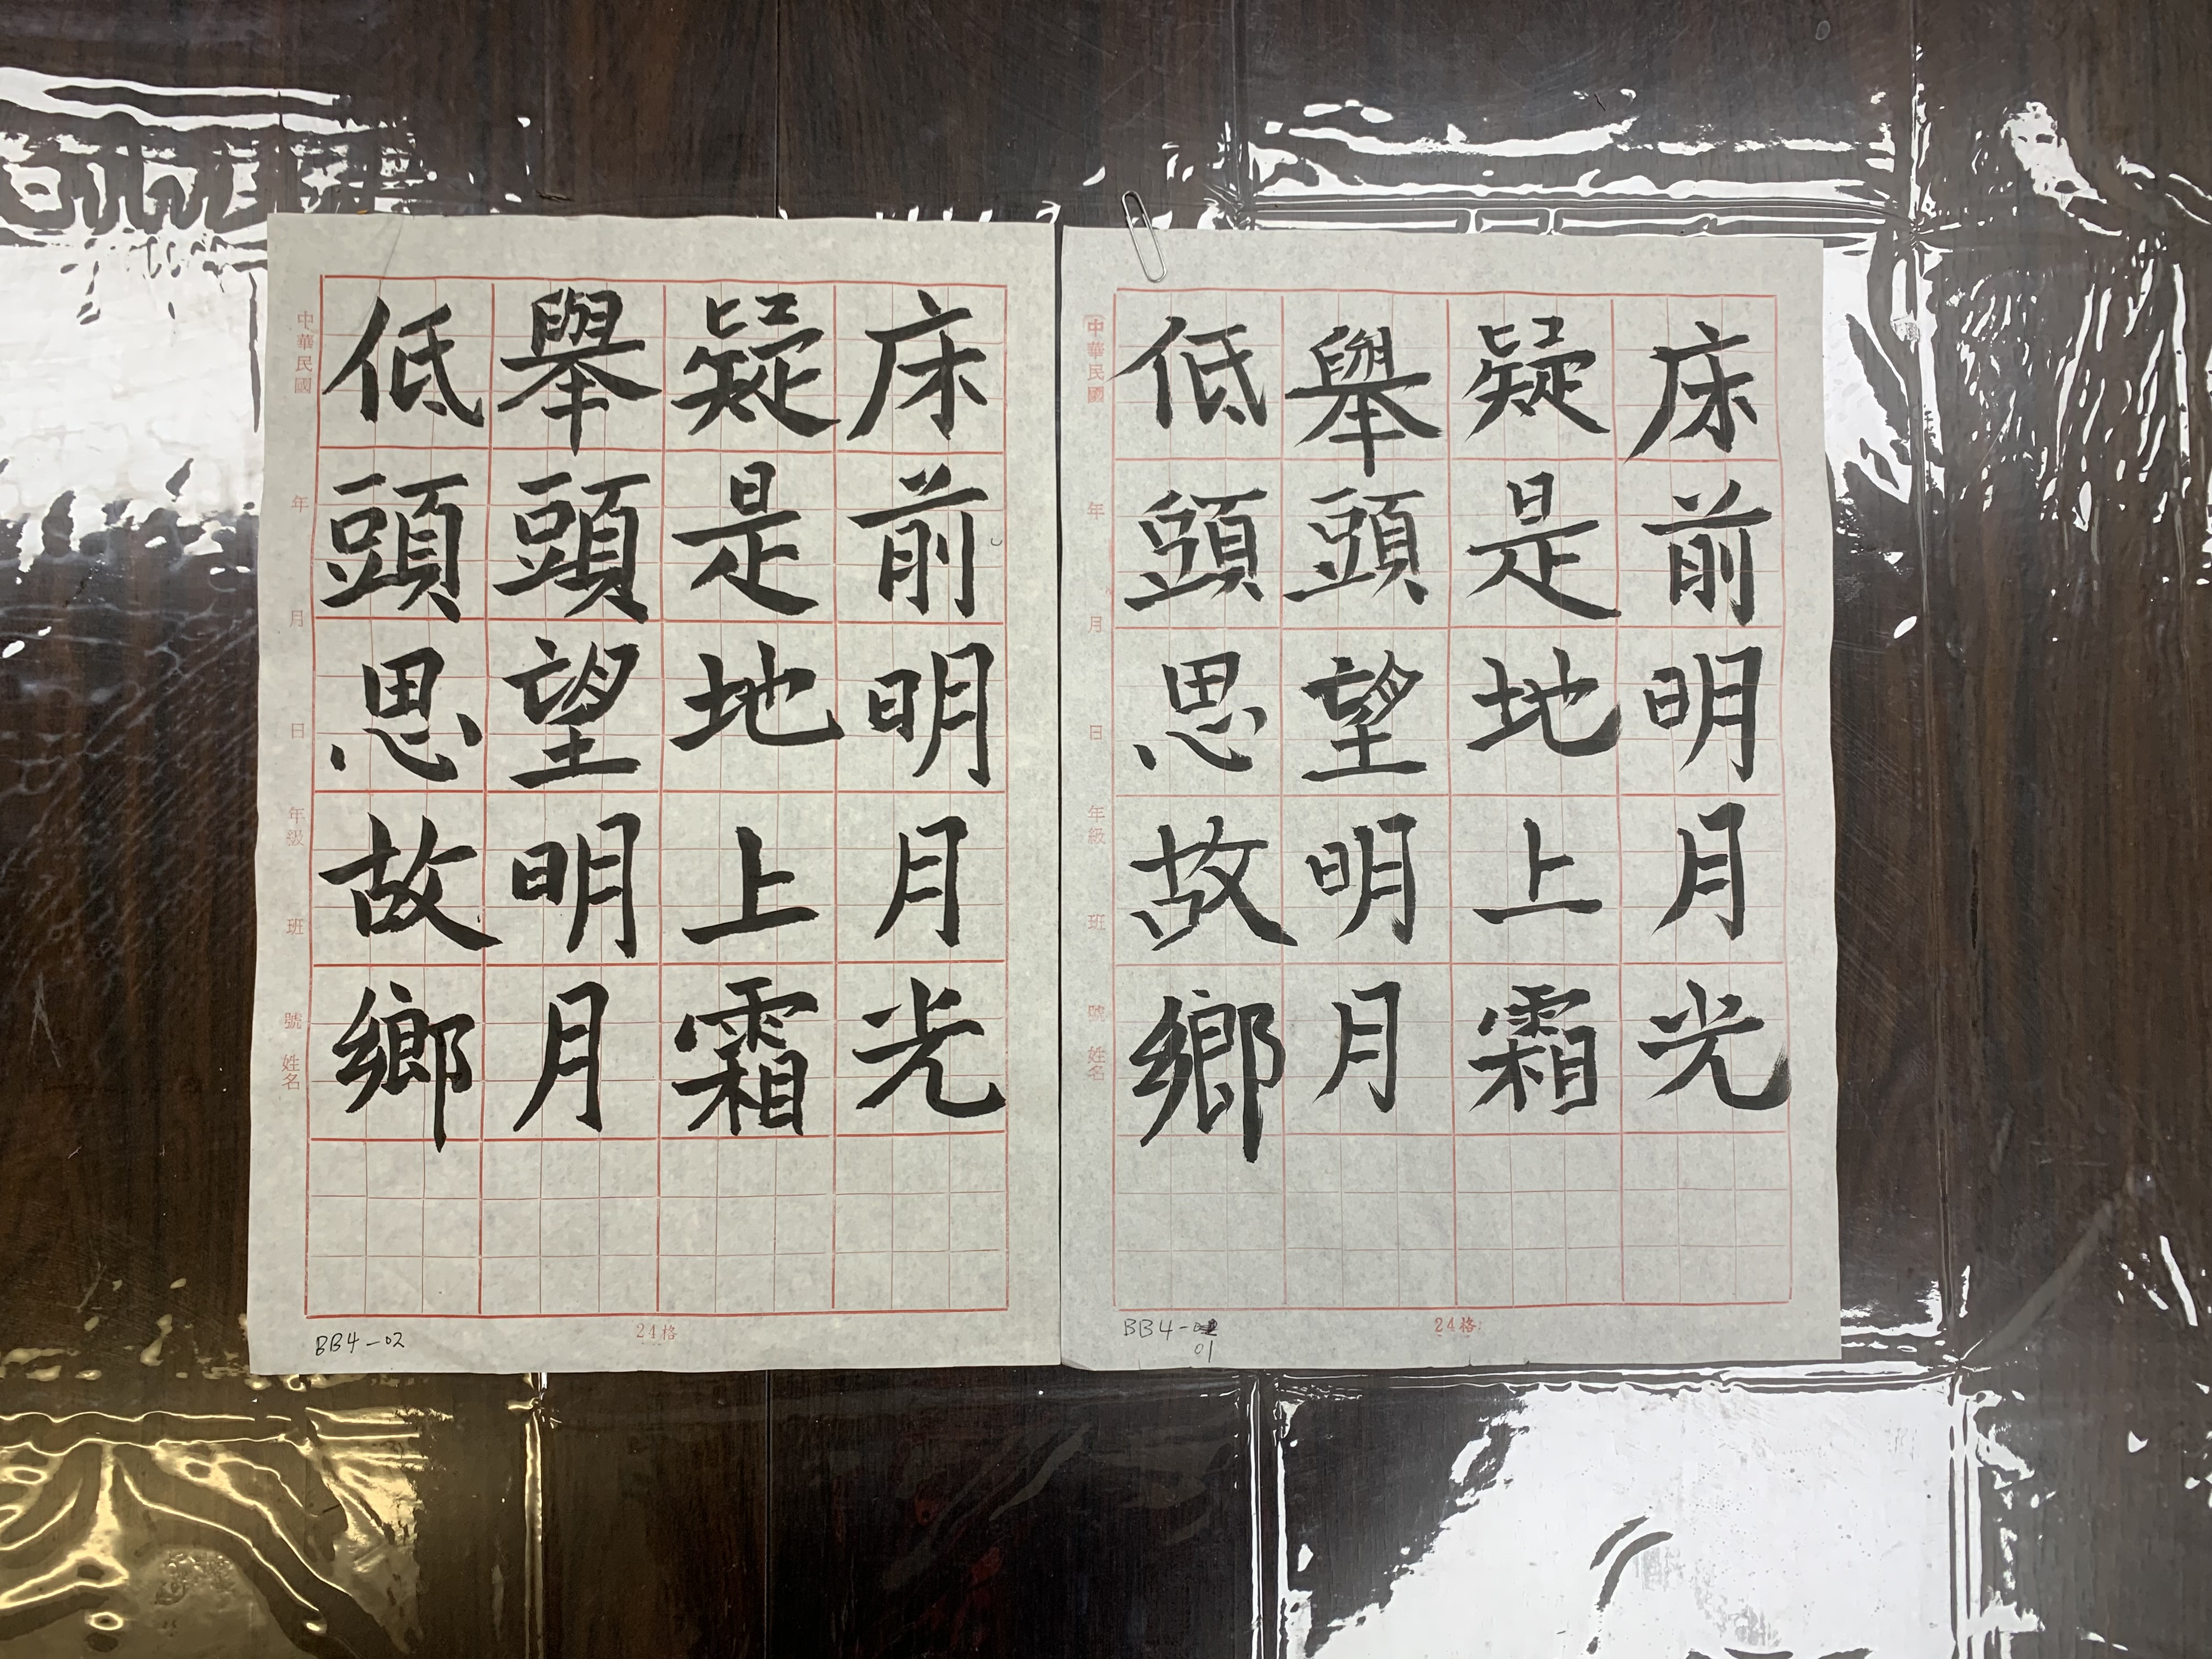 床前明月光
疑是地上霜
舉頭望明月
低頭思故鄉
中華民國 年 月 日 年級 班 號 姓名
24格
BB4-01
床前明月光
疑是地上霜
舉頭望明月
低頭思故鄉
中華民國 年 月 日 年級 班 號 姓名
24格
BB4-02